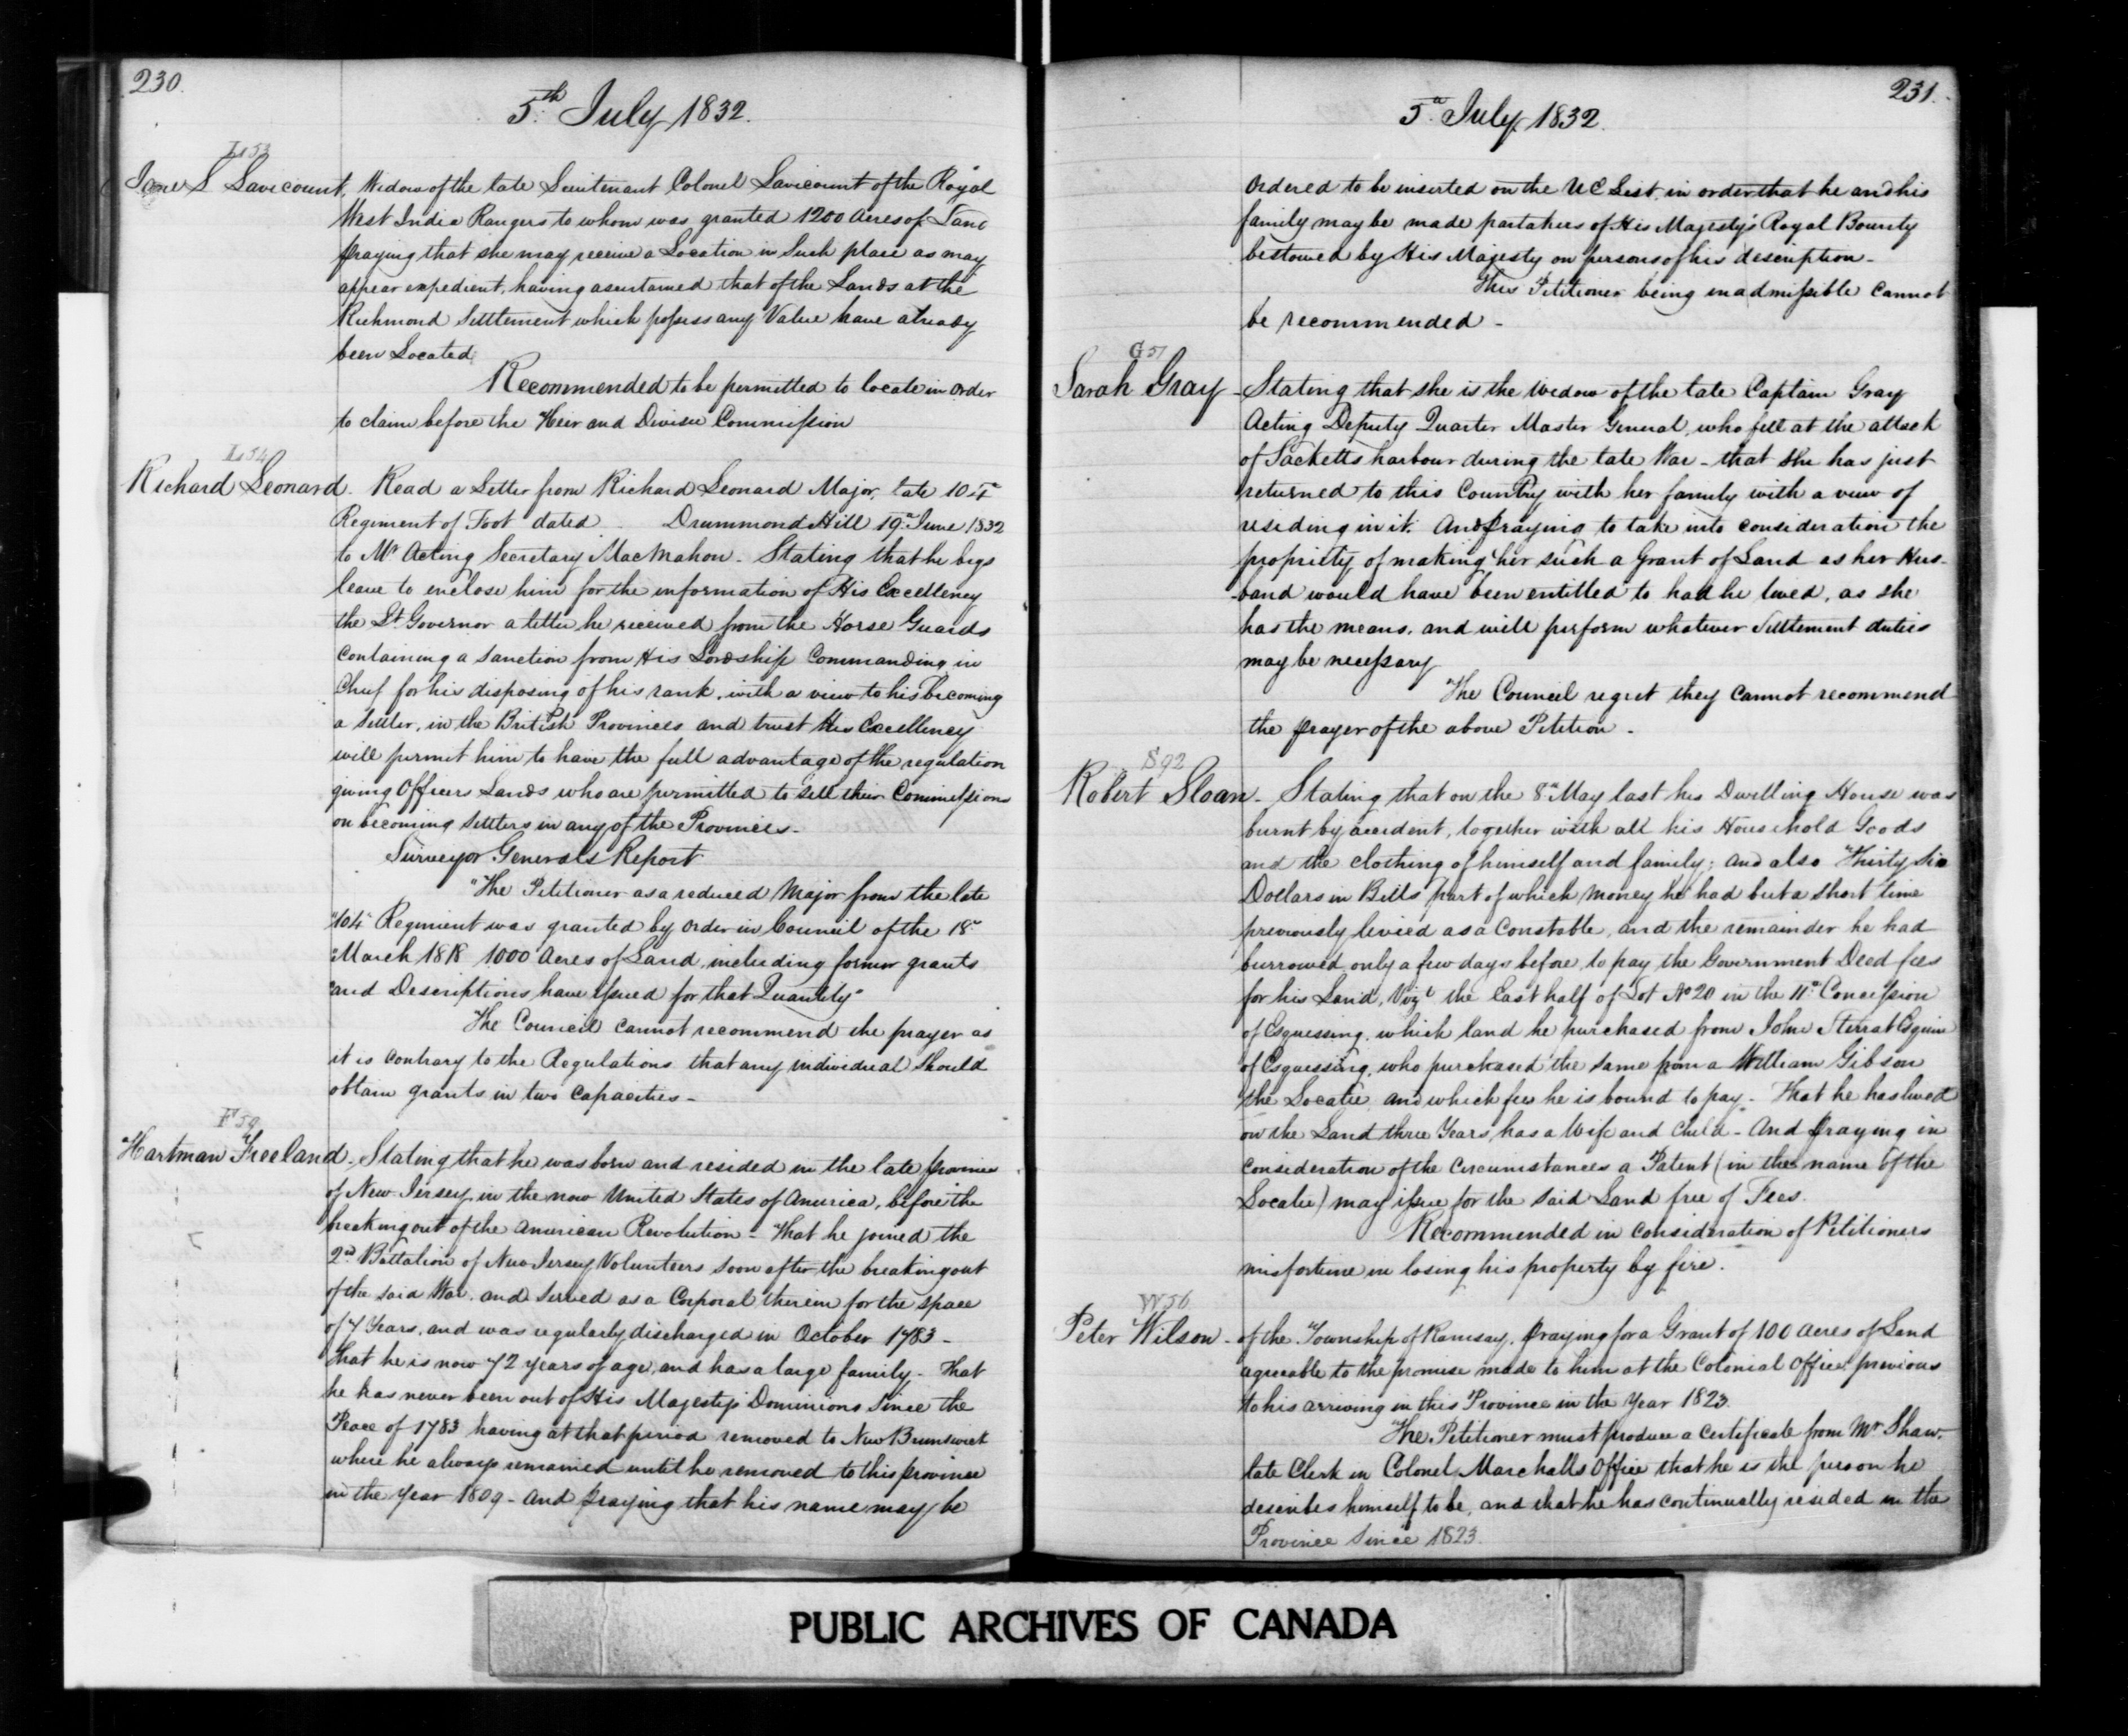 230.
5.th July 1832.
L 53
Jane S Lavicount, Widow of the late Lieutenant Colonel Lavicount of the Royal
West India Rangers to whom was granted 1200 acres of Land
praying that she may receive a Location in Such place as may
appear expedient, having ascertained that of the Lands at the
Richmond Settlement which possess any Value have already
been Located
Recommended to be permitted to locate in order
to claim before the Heir and Devisee Commission
L 54
Richard Leonard. Read a Letter from Richard Leonard Major, late 104th
Regiment of Foot dated Drummond Hill 19th June 1832
to Mr Acting Secretary MacMahon. Stating that he begs
leave to enclose him for the information of His Excellency
the Lt Governor a letter he received from the Horse Guards
Containing a Sanction from His Lordship Commanding in
Chief for his disposing of his rank, with a view to his becoming
a Settler, in the British Provinces and trust His Excellency
will permit him to have the full advantage of the regulation
giving Officers Lands who are permitted to Sell their Commissions
on becoming Settlers in any of the Provinces.
Surveyor Generals Report
"The Petitioner as a reduced Major from the late
"104th Regiment was granted by order in Council of the 18th
"March 1818 1000 Acres of Land, including former grants
"and Descriptions have issued for that Quantity"
The Council cannot recommend the prayer as
it is contrary to the Regulations that any individual Should
obtain grants in two Capacities -
F 59
Hartman Freeland. Stating that he was born and resided in the late province
of New Jersey, in the now United States of America, before the
breaking out of the American Revolution - That he joined the
2nd Battalion of New Jersey Volunteers Soon after the breaking out
of the Said War. and Served as a Corporal therein for the Space
of 7 Years, and was regularly discharged in October 1783 -
that he is now 72 years of age, and has a large family - That
he has never been out of His Majesty's Dominions Since the
Peace of 1783 having at that period removed to New Brunswick
where he always remained until he removed to this province
in the Year 1809 - And praying that his name may be
231.
5.th July 1832.
Ordered to be inserted on the UE List, in order that he and his
family may be made partakers of His Majesty's Royal Bounty
bestowed by His Majesty on persons of his description -
This Petitioner being inadmissible cannot
be recommended -
G 51
Sarah Gray - Stating that she is the Widow of the late Captain Gray
Acting Deputy Quarter Master General, who fell at the attack
of Sacketts harbour during the late War - that She has just
returned to this Country with her family with a view of
residing in it. And praying to take into consideration the
propriety of making her such a Grant of Land as her Hus-
-band would have been entitled to had he lived, as she
has the means, and will perform whatever Settlement duties
may be necessary
The Council regret they cannot recommend
the prayer of the above Petition -
S 92
Robert Sloan - Stating that on the 8th May last his Dwelling House was
burnt by accident, together with all his Household Goods
and the clothing of himself and family; and also Thirty Six
Dollars in Bills part of which money he had but a short time
previously levied as a Constable, and the remainder he had
burrowed only a few days before to pay the Government Deed fees
for his Land, Vizt the East half of Lot No 20 in the 11th Concession
of Esquessing, which land he purchased from John Sterrat Esquire
of Esquessing, who purchased the same from a William Gibson
the Locatee and which fees he is bound to pay - That he has lived
on the Land three Years, has a Wife and Child - And praying in
Consideration of the Circumstances a Patent (in the name of the
Locatee) may issue for the Said Land free of Fees.
Recommended in consideration of Petitioners
misfortune in losing his property by fire.
W 56
Peter Wilson - of the Township of Ramsay, praying for a Grant of 100 acres of Land
agreeable to the promise made to him at the Colonial Office previous
to his arriving in this Province in the Year 1823.
The Petitioner must produce a Certificate from Mr Shaw,
late Clerk in Colonel Marshalls Office that he is the person he
describes himself to be, and that he has continually resided in the
Province Since 1823.
PUBLIC ARCHIVES OF CANADA